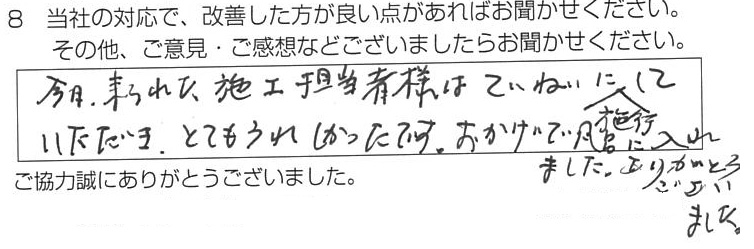 8 当社の対応で、改善した方が良い点があればお聞かせください。
その他、ご意見・ご感想などございましたらお聞かせください。
今日、来られた施工担当者様はていねいに施行して
いただき、とてもうれしかったです。おかげで風呂に入れ
ました。ありがとう
ござい
ました。
ご協力誠にありがとうございました。